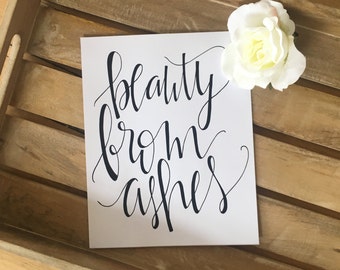 beauty
from
ashes